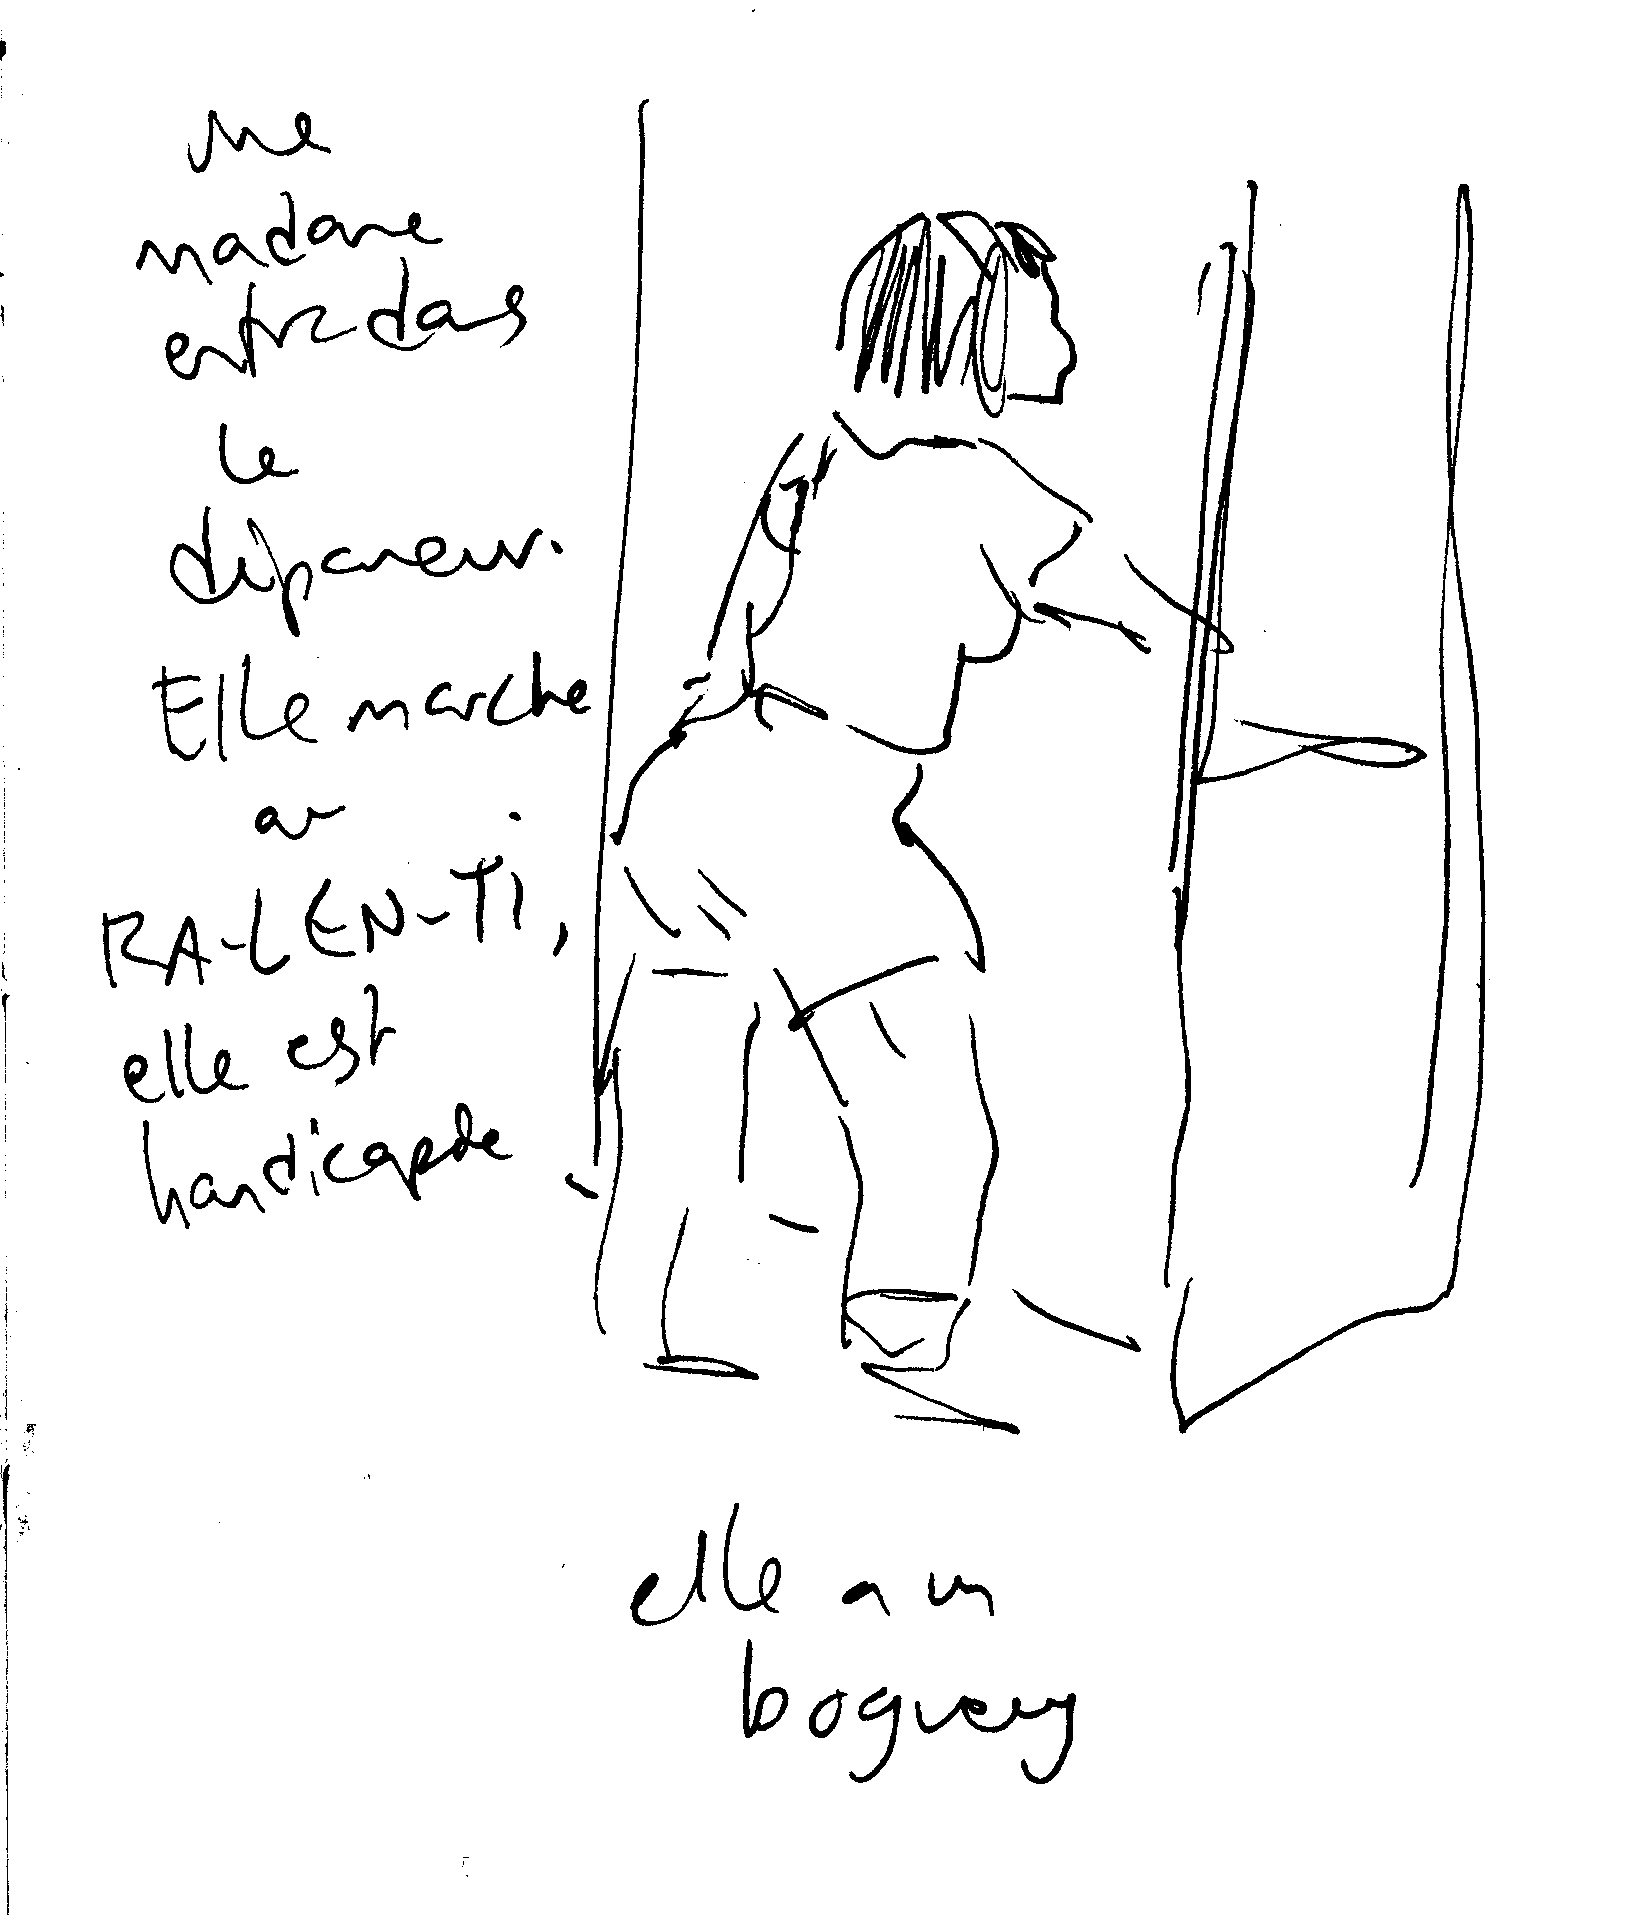 une
madame
entre dans
le
dépaneur.
Elle marche
au
RA-LEN-Ti,
elle est
handicapée
elle a un
boguey